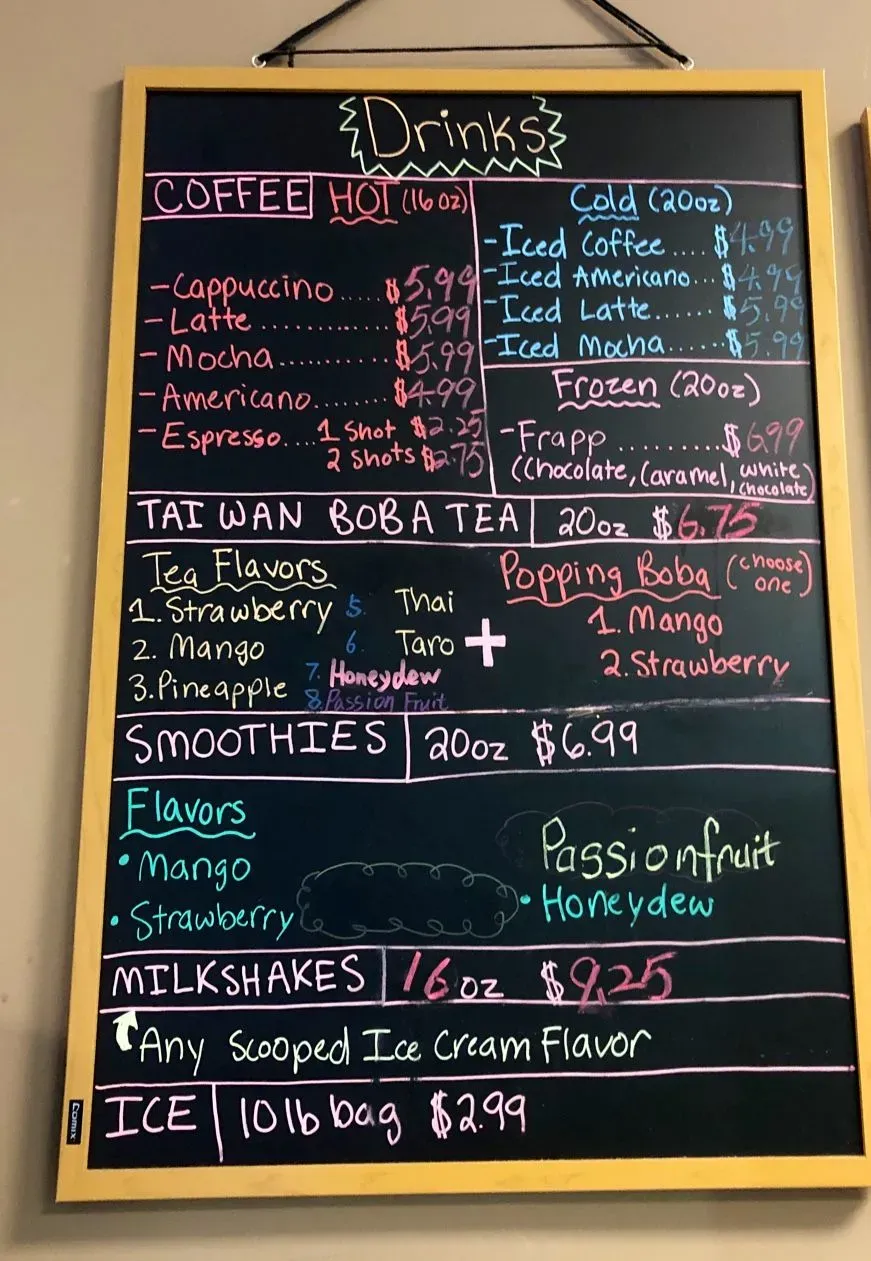 Drinks
COFFEE HOT (16 oz)
-Cappuccino..... $5.99
-Latte .............. $5.99
-Mocha............. $5.99
-Americano........ $4.99
-Espresso....1 Shot $2.25
2 Shots $2.75
Cold (20oz)
-Iced Coffee.... $4.99
-Iced Americano... $4.99
-Iced Latte...... $5.99
-Iced Mocha...... $5.99
Frozen (20oz)
-Frapp ......... $6.99
(Chocolate, Caramel, white chocolate)
TAIWAN BOBA TEA 20oz $6.75
Tea Flavors
1. Strawberry 5. Thai
2. Mango 6. Taro
3. Pineapple 7. Honeydew
8. Passion Fruit
+
Popping Boba (choose one)
1. Mango
2. Strawberry
SMOOTHIES 20oz $6.99
Flavors
• Mango
• Strawberry
Passionfruit
• Honeydew
MILKSHAKES 16 oz $9.25
Any Scooped Ice Cream Flavor
ICE 10 lb bag $2.99
Comix